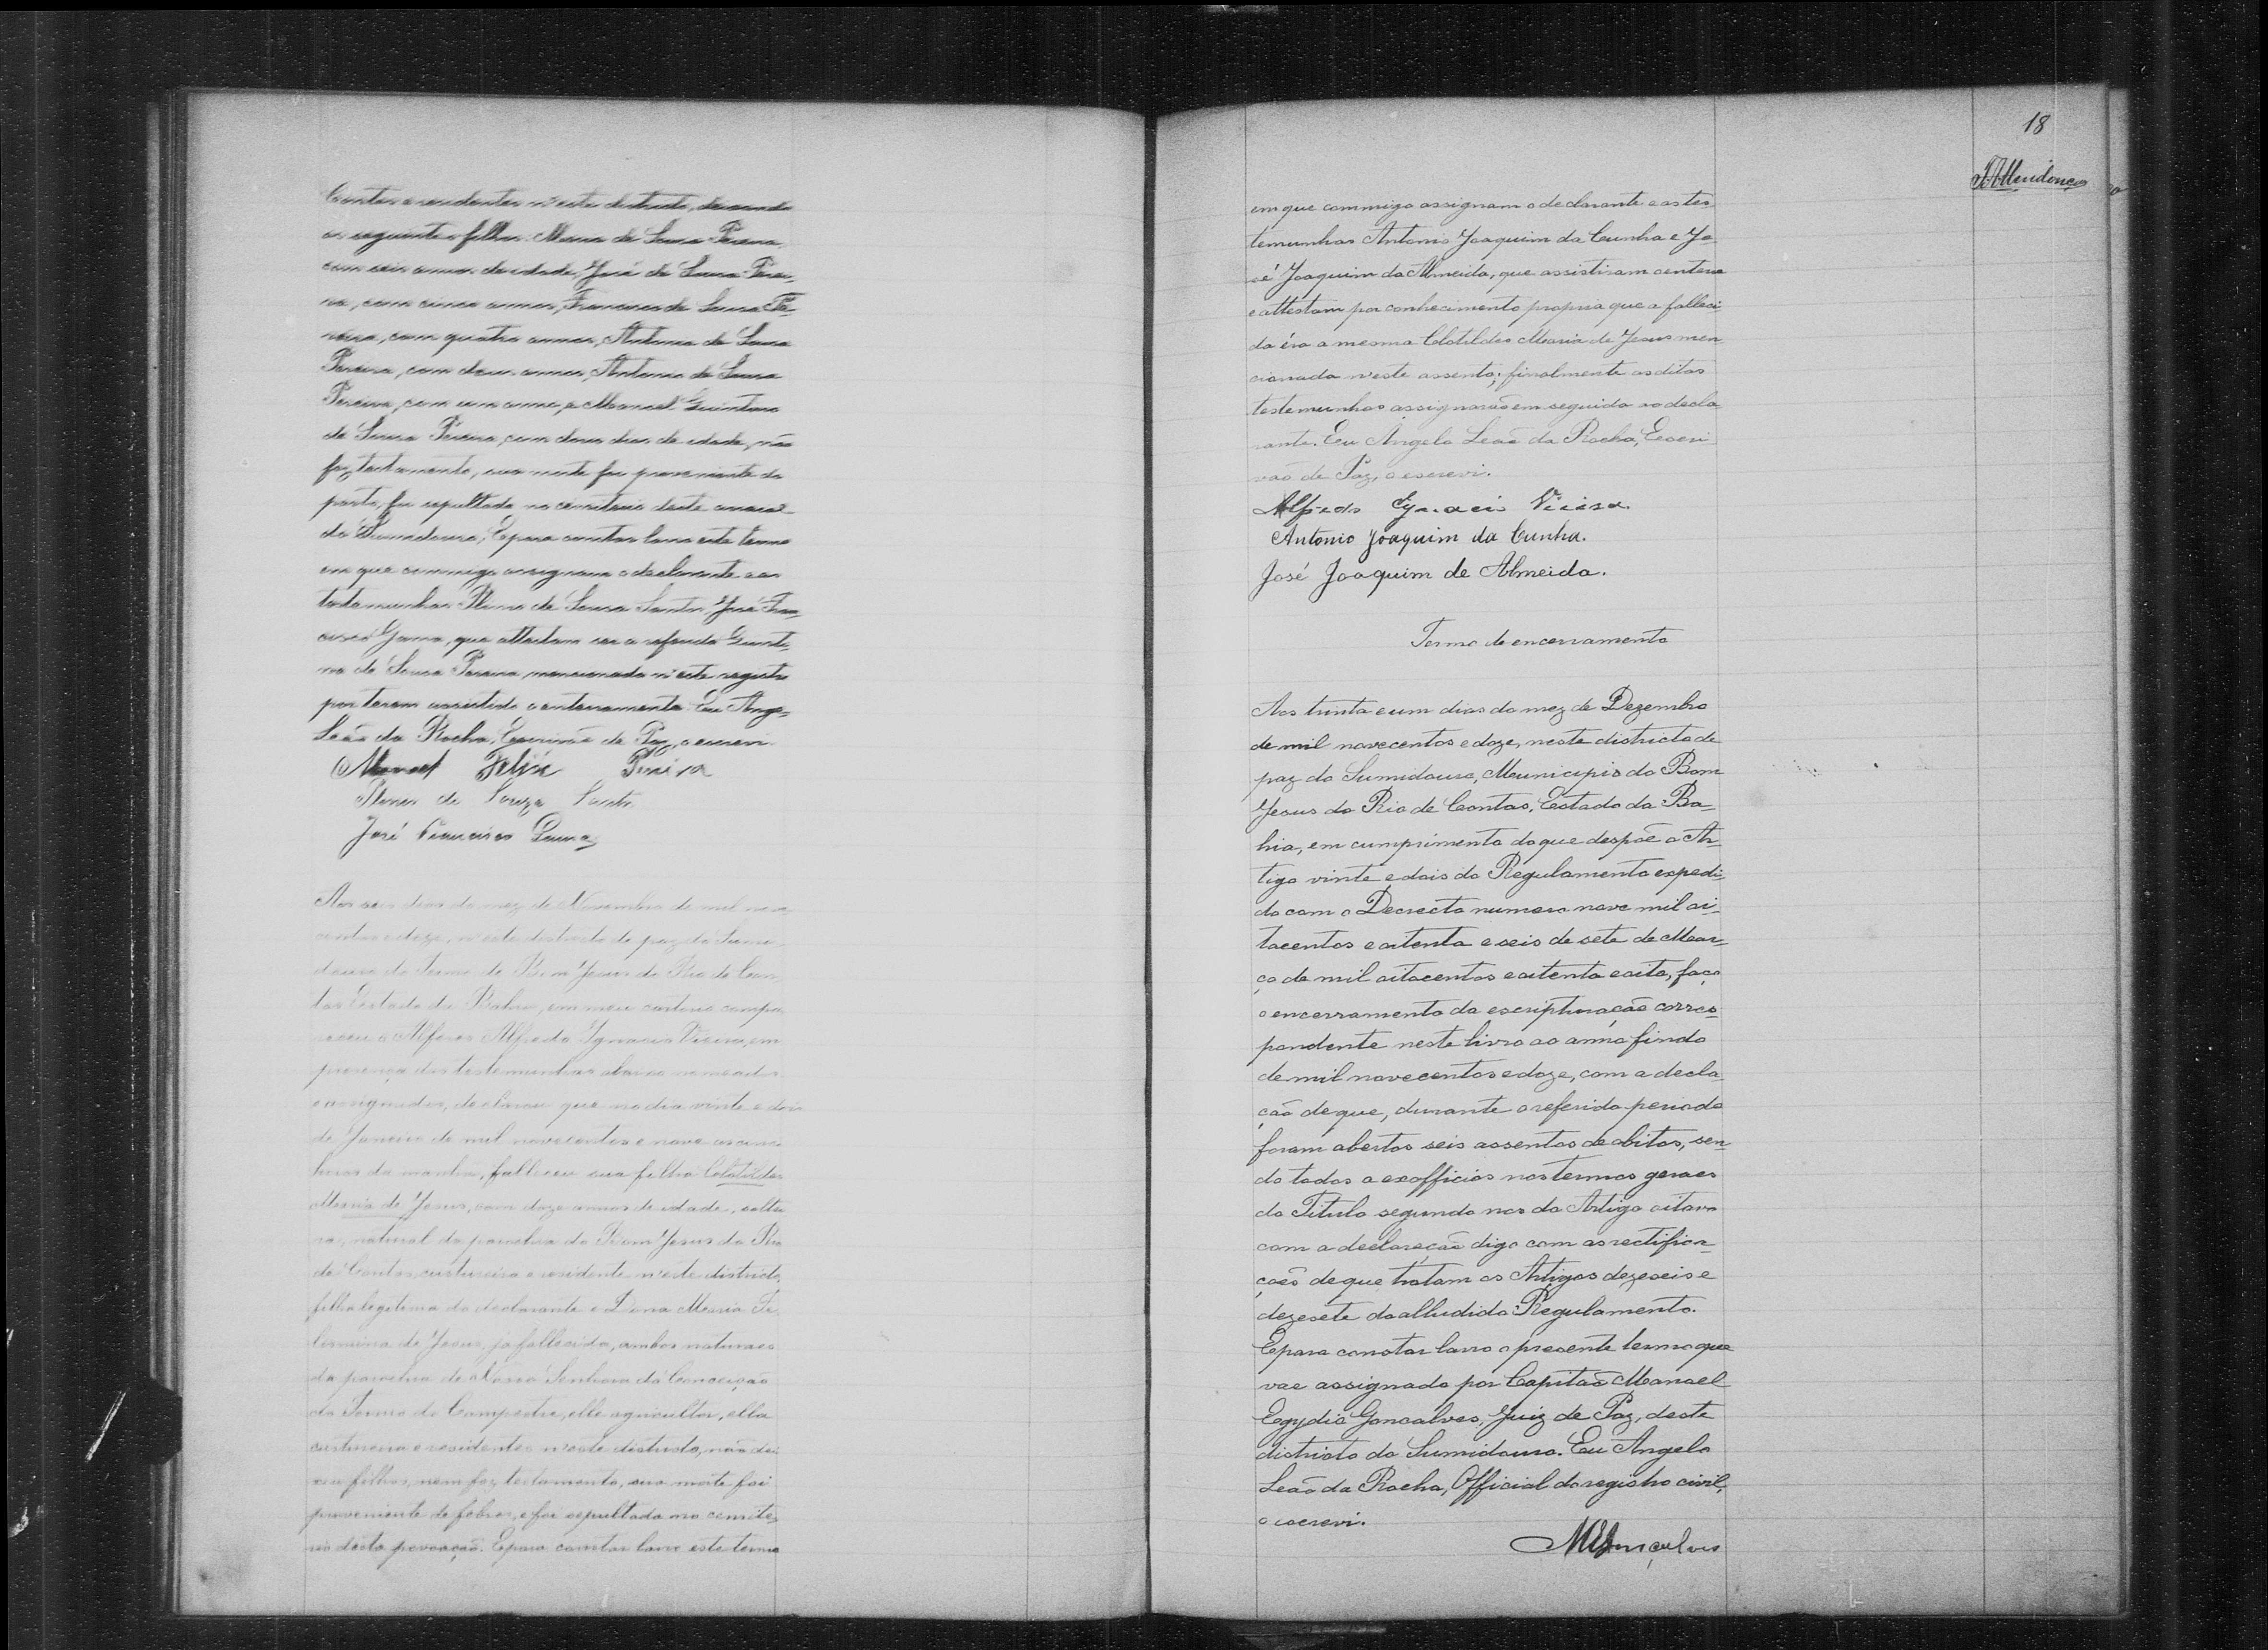 Contas e residentes n'este districto, deixando
os seguintes filhos: Maria de Sousa Pereira,
com seis annos de idade, José de Sousa Perei-
ra, com cinco annos, Francisco de Sousa Pe-
reira, com quatro annos, Antonia de Sousa
Pereira, com dous annos, Antonio de Sousa
Pereira, com um anno, e Manoel
de Sousa Pereira, com dous dias de idade, não
fez testamento, sua morte foi proveniente de
parto, foi sepultada no cemiterio deste arraial
do Sumidouro; E para constar lavro este termo
em que commigo assignam o declarante e as
testemunhas de Sousa Santos José Fran-
cisco Gama, que attestam ser a referida
de Sousa Pereira mencionada n'este registro
por terem assistido o enterramento. Eu Angelo
Leão da Rocha, Escrivão de Paz, o escrevi.
Manoel Felix Pereira
de Souza Santos
José Francisco Gama
Aos seis dias do mez de Novembro de mil nove
centos e doze, n'este districto de paz do Sumi-
douro do Termo do Bom Jesus do Rio de Con-
tas Estado da Bahia, em meu cartorio compa
receu o Alferes Alfredo Ignacio Vieira, em
presença das testemunhas abaixo nomeadas
e assignadas, declarou que no dia vinte e dois
de Janeiro de mil novecentos e nove as cinco
horas da manhã, falleceu sua filha Clotildes
Maria de Jesus, com doze annos de idade, soltei
ra, natural da parochia do Bom Jesus do Rio
de Contas, custureira e residente n'este districto,
filha legitima do declarante e Dona Maria
de Jesus, já fallecida, ambos naturaes
da parochia de Nossa Senhora da Conceição
do Termo de Campestre, elle agricultor, ella
custureira e residentes n'este districto, não dei
xou filhos, nem fez testamento, sua morte foi
proveniente de febres, e foi sepultada no cemite-
rio desta povoação. E para constar lavro este termo
18
em que commigo assignam o declarante e as tes
temunhas Antonio Joaquim da Cunha e Jo
sé Joaquim da Almeida, que assistiram o enterro
e attestam por conhecimento proprio que a falleci
da éra a mesma Clotildes Maria de Jesus men
cionada n'este assento; finalmente as ditas
testemunhas assignarão em seguida ao decla
rante. Eu Angelo Leão da Rocha, Escri
vão de Paz, o escrevi.
Alfredo Ignacio Vieira.
Antonio Joaquim da Cunha.
José Joaquim de Almeida.
Termo de encerramento
Aos trinta e um dias do mez de Dezembro
de mil novecentos e doze, neste districto de
paz do Sumidouro, Municipio do Bom
Jesus do Rio de Contas, Estado da Ba-
hia, em cumprimento do que despõe o Ar-
tigo vinte e dois do Regulamento expedi-
do com o Decrecto numero nove mil oi-
tocentos e oitenta e seis de sete de Mar-
ço de mil oitocentos e oitenta e oito, faço
o encerramento da escripturação corres-
pondente neste livro ao anno findo
de mil novecentos e doze, com a decla-
ção de que, durante o referido periodo
foram abertos seis assentos de obitos, sen
do todos a exofficios nos termos geraes
do Titulo segundo nos do Artigo oitavo
com a declaração digo com as rectifica-
ções de que tratam os Artigos dezeseis e
dezesete do alludido Regulamento.
E para constar lavro o presente termo que
vae assignado por Capitão Manoel
Egydio Goncalves, Juiz de Paz, deste
districto do Sumidouro. Eu Angelo
Leão da Rocha, Official do registro civil,
o escrevi.
MEGonçalves